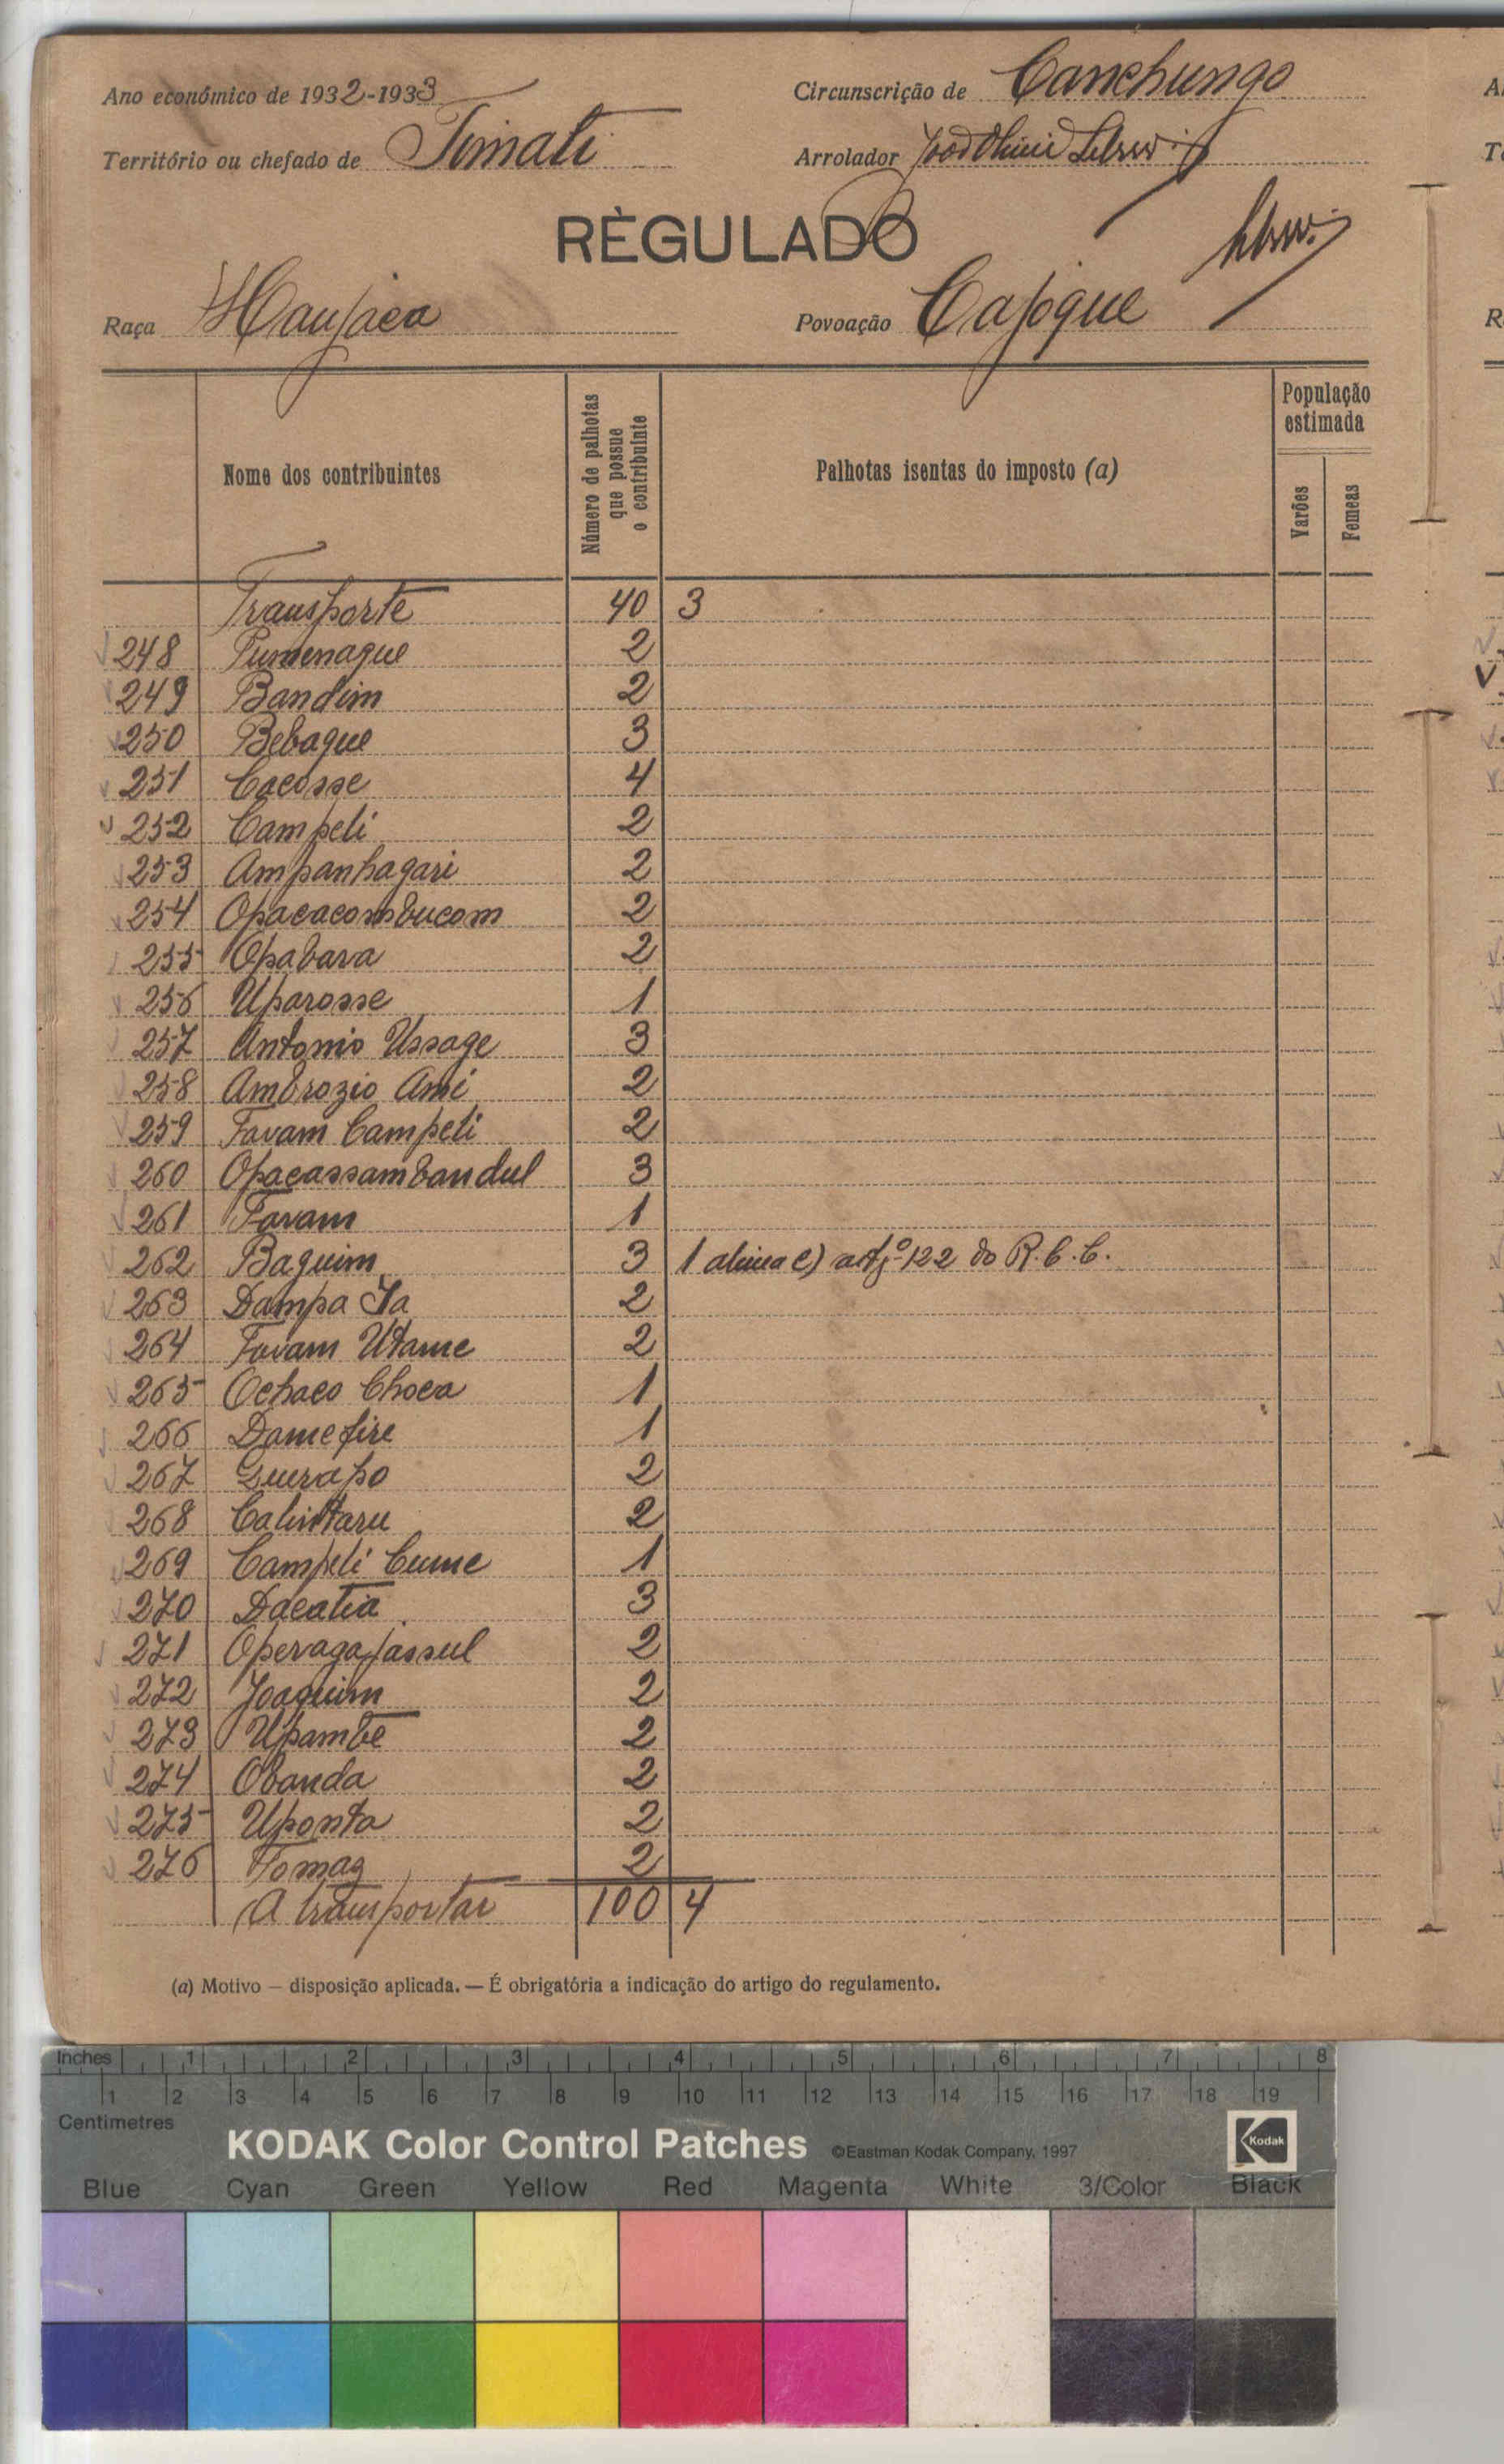 Ano económico de 1932-1933 Circunscrição de Canchungo
Território ou chefado de Timati Arrolador
RÈGULADO
Raça Manjaca Povoação Cajogue
Nome dos contribuintes Número de palhotas que possue o contribuinte Palhotas isentas do imposto (a) População estimada Varões Femeas
Transporte 40 3
248 Pumenaque 2
249 Bandim 2
250 Bebaque 3
251 Cacosse 4
252 Campeli 2
253 Ampanhagari 2
254 Opacacombucom 2
255 Opabava 2
256 Uparosse 1
257 Antonio Ussage 3
258 Ambrozio Ami 2
259 Favam Campeli 2
260 Opacassambandul 3
261 Favam 1
262 Baquim 3 1 alinea c) artº 122 do R.C.C.
263 Dampa Ja 2
264 Favam Utame 2
265 Ochaco Choca 1
266 Damefire 1
267 Gurapo 2
268 Calintaru 2
269 Campeli Cume 1
270 Dacatia 3
271 Opervagajassul 2
272 Joaquim 2
273 Upambe 2
274 Obanda 2
275 Uponta 2
276 Tomaz 2
A transportar 100 4
(a) Motivo — disposição aplicada. — É obrigatória a indicação do artigo do regulamento.
Inches 1 2 3 4 5 6 7 8
1 2 3 4 5 6 7 8 9 10 11 12 13 14 15 16 17 18 19
Centimetres
KODAK Color Control Patches ©Eastman Kodak Company, 1997 Kodak
Blue Cyan Green Yellow Red Magenta White 3/Color Black